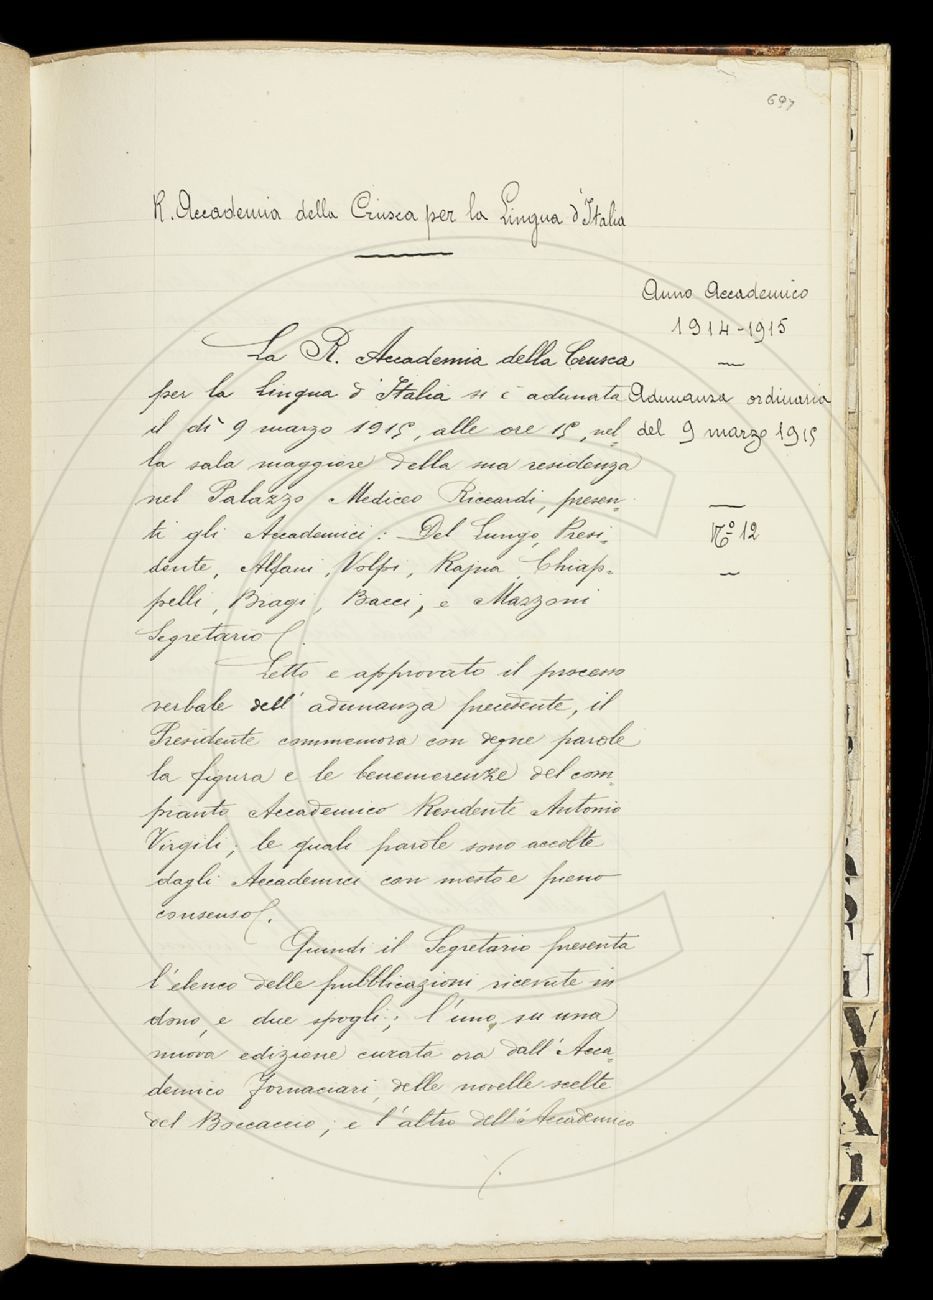 697
R. Accademia della Crusca per la Lingua d'Italia
Anno Accademico
1914-1915
Adunanza ordinaria
del 9 marzo 1915
N.º 12
La R. Accademia della Crusca
per la Lingua d'Italia si è adunata
il dì 9 marzo 1915, alle ore 15, nel-
la sala maggiore della sua residenza
nel Palazzo Mediceo Riccardi, presen-
ti gli Accademici: Del Lungo, Presi-
dente, Alfani, Volpi, Rajna, Chiap-
pelli, Biagi, Bacci, e Mazzoni
Segretario.
Letto e approvato il processo
verbale dell'adunanza precedente, il
Presidente commemora con degne parole
la figura e le benemerenze del com-
pianto Accademico Residente Antonio
Virgili; le quali parole sono accolte
dagli Accademici con mesto e pieno
consenso.
Quindi il Segretario presenta
l'elenco delle pubblicazioni ricevute in
dono, e due spogli; l'uno, su una
nuova edizione curata ora dall'Acca-
demico Fornaciari, delle novelle scelte
del Boccaccio; e l'altro dell'Accademico
U
V
X
Z